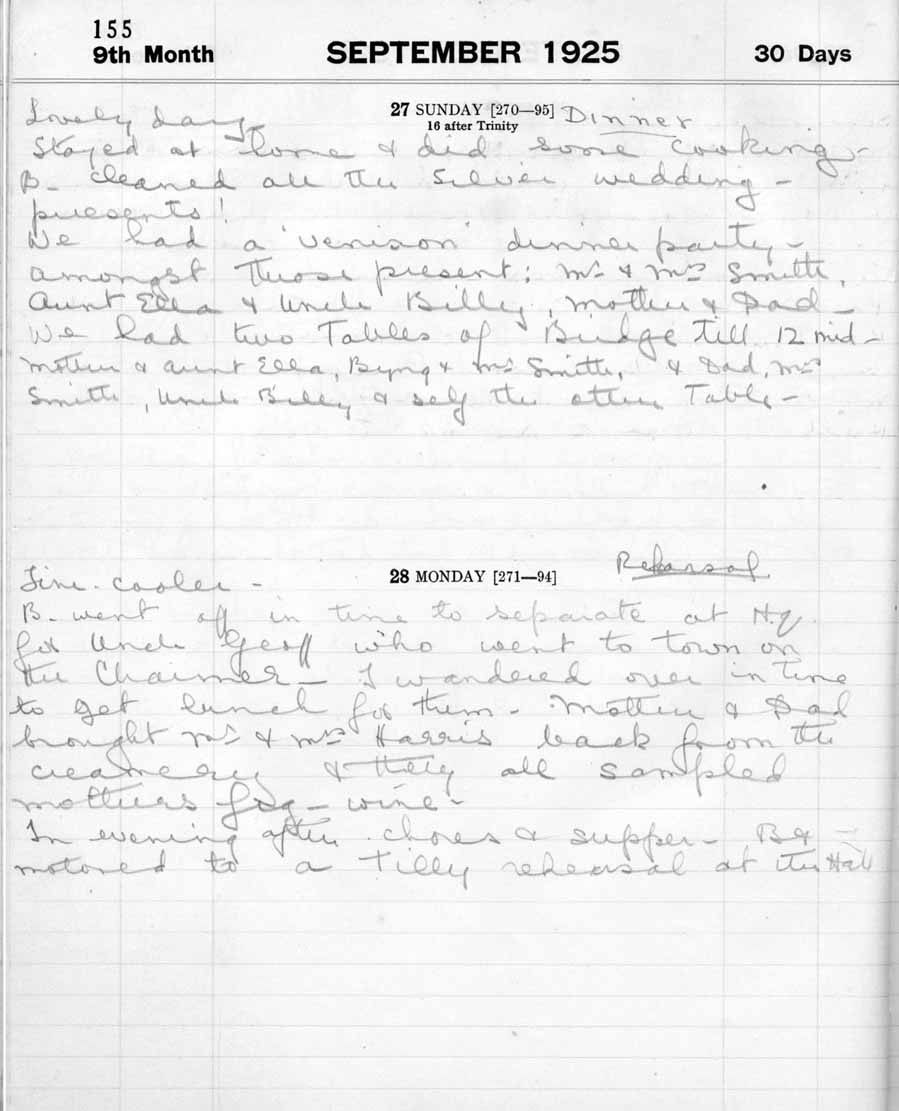 155
9th Month SEPTEMBER 1925 30 Days
27 SUNDAY [270—95] Dinner
16 after Trinity
Lovely day
Stayed at home & did some cooking -
B - cleaned all the silver wedding -
presents!
We had a 'venison' dinner party -
amongst those present: Mr & Mrs Smith,
Aunt Ella & Uncle Billy, Mother & Dad -
We had two Tables of Bridge till 12 mid -
Mother & Aunt Ella, Byng & Mr Smith, & Dad, Mrs
Smith, Uncle Billy & self the other Table -
28 MONDAY [271—94] Rehearsal
Fine - cooler -
B. went off in time to separate at H.q.
for Uncle Geoff who went to town on
the Charmer - I wandered over in time
to get lunch for them - Mother & Dad
brought Mr & Mrs Harris back from the
creamery & they all sampled
mothers fog - wine -
In evening after chores & supper - B &
motored to a Tilly rehersal at the Hall